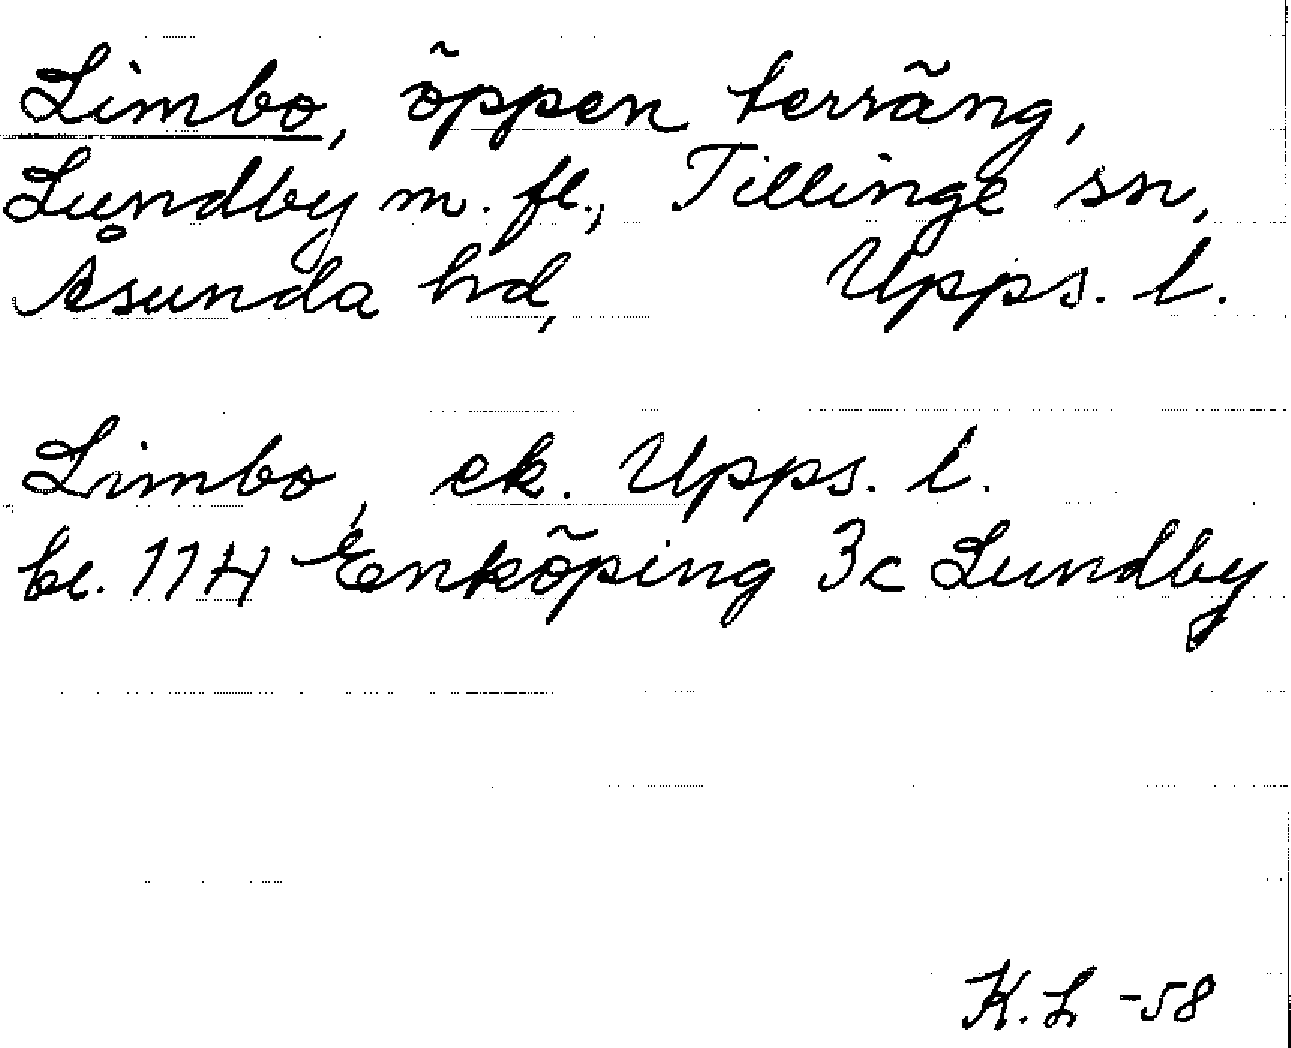 Limbo, öppen terräng,
Lundby m. fl., Tillinge sn,
Åsunda hd, Upps. l.
Limbo, ek. Upps. l.
bl. 11H Enköping 3c Lundby
K. L -58